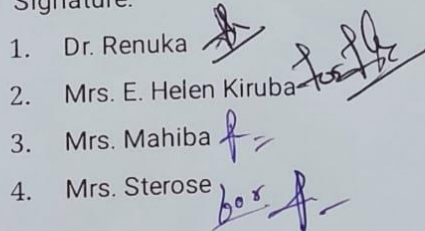 Signature:
1. Dr. Renuka
2. Mrs. E. Helen Kiruba for
3. Mrs. Mahiba
4. Mrs. Sterose for